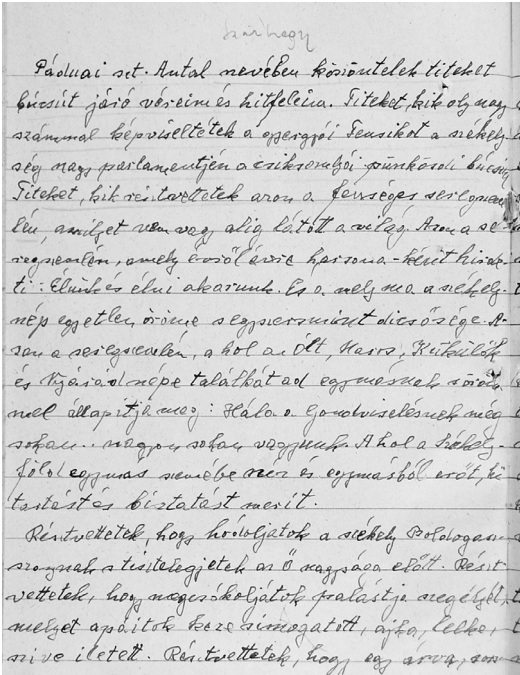 Szárhegy
Páduai szt. Antal nevében köszöntelek titeket
búcsút járó véreim és hitfeleim. Titeket, kik oly nagy
számmal képviseltétek a gyergyói Fensikot a székely-
ség nagy parlamentjén a csiksomlyói pünkösdi búcsún
Titeket, kik résztvettetek azon a fenséges seregszem-
lén, amilyet nem vagy alig látott a világ. Azon a se-
regszemlén, amely évről évre harsona-ként hirde-
ti: Élünk és élni akarunk. És a mely ma a székely-
nép egyetlen öröme s egyszersmint dicsősége. A-
zon a seregszemlén, a hol az Olt, Maros, Küküllők
és Nyárád népe találkát ad egymásnak s öröm-
mel állapitja meg: Hála a Gondviselésnek még
sokan.. nagyon sokan vagyunk. A hol a Székely-
föld egymás szemébe néz és egymásból erőt, ki
tartást és biztatást merít.
Résztvettetek, hogy hódoljatok a székely Boldogasz-
szonynak s tisztelegjetek az Ő nagysága előtt. Részt
vettetek, hogy megcsókoljátok palástja szegélyét,
melyet apáitok keze simogatott, ajka, lelke,
szive illetett. Résztvettetek, hogy egy árva,